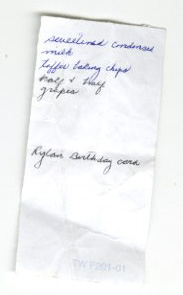 sweetened condensed
milk
toffee baking chips
half & half
grapes
Rylan Birthday card
TW F201-01